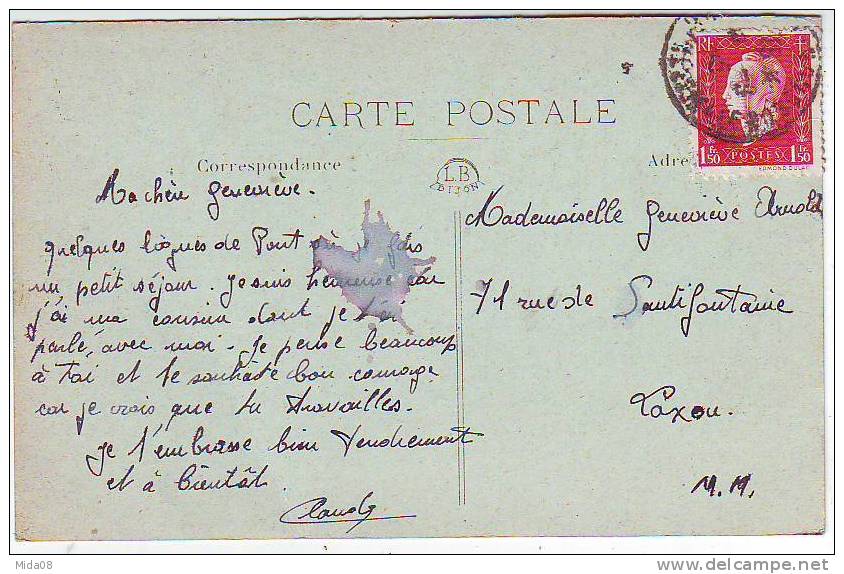 CARTE POSTALE
Correspondance
Adre
LB
DIJON
RF
1 Fr 50 POSTES 1 Fr 50
EDMOND DULAC
Ma chère Geneviève.
quelques lignes de Pont où je fais
un petit séjour. Je suis heureuse car
j'ai ma cousine dont je t'ai
parlé, avec moi. Je pense beaucoup
à toi et te souhaite bon courage
car je crois que tu travailles.
Je t'embrasse bien tendrement
et à bientôt.
Mademoiselle Geneviève Arnold
71 rue de Santifontaine
Laxou.
M.M.
Mida08
www.delcampe.net